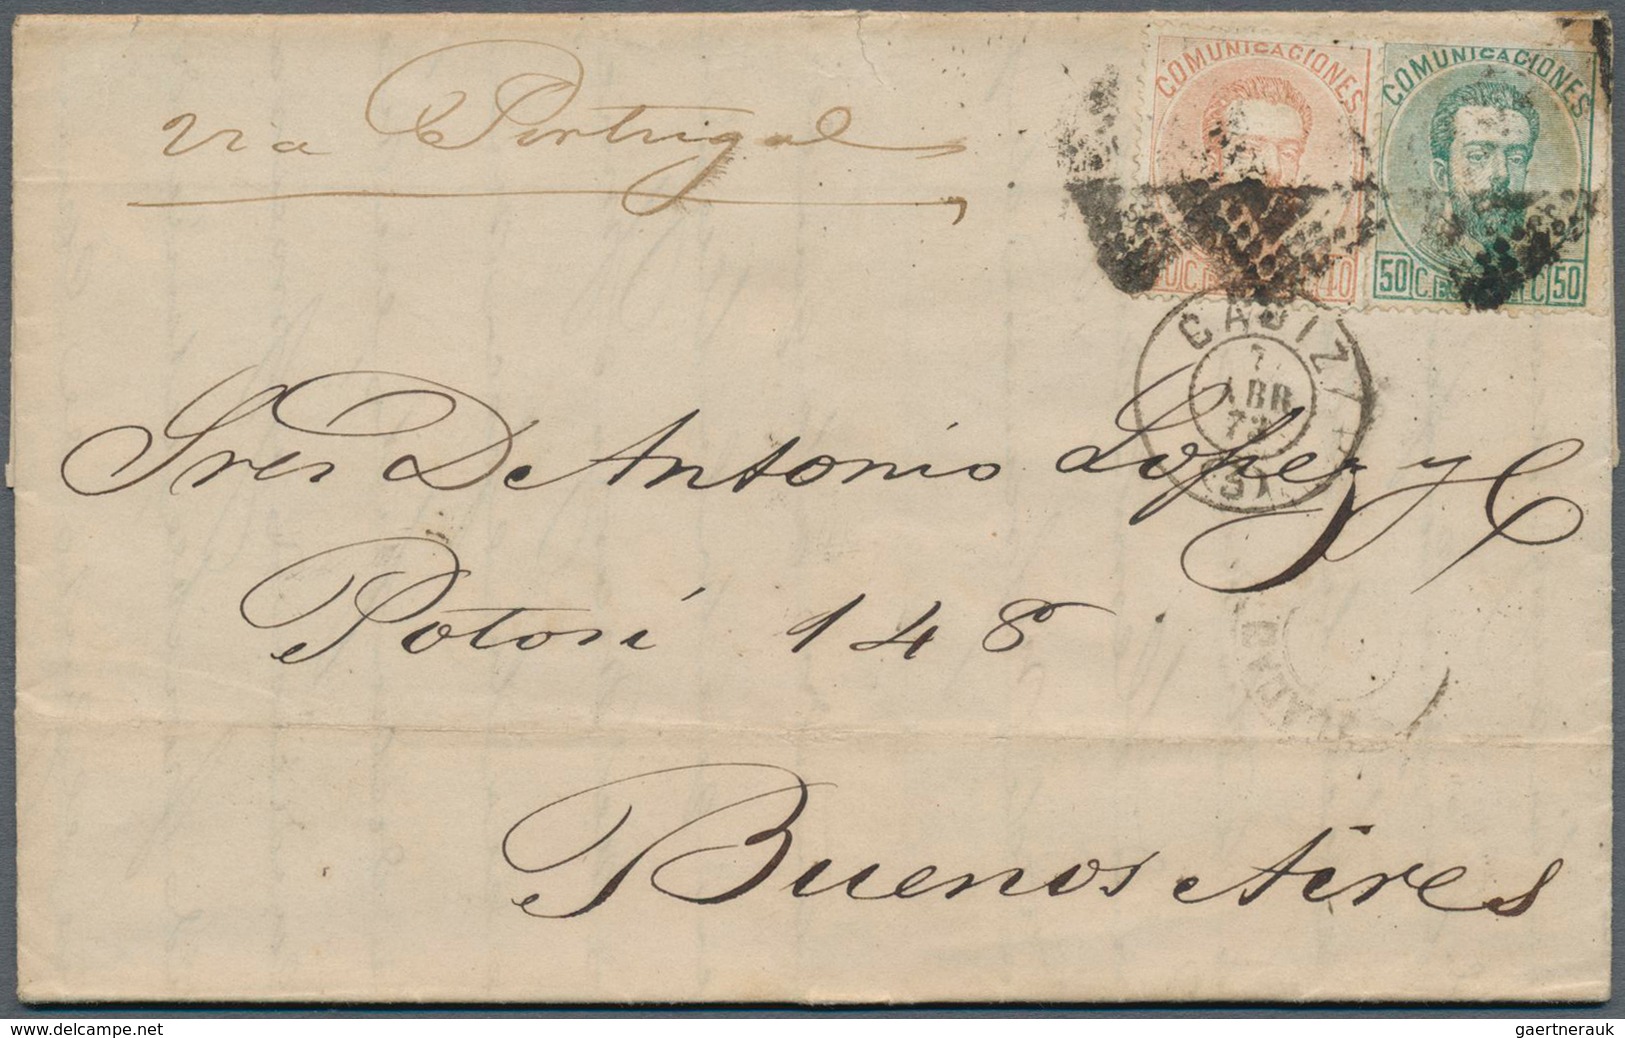 via Portugal
COMUNICACIONES
COMUNICACIONES
40
50 C. 50
CADIZ
7
ABR
73
Sres De Antonio Lopez y C
Potosi 148
Buenos Aires
delcampe.net
gaertnerauk